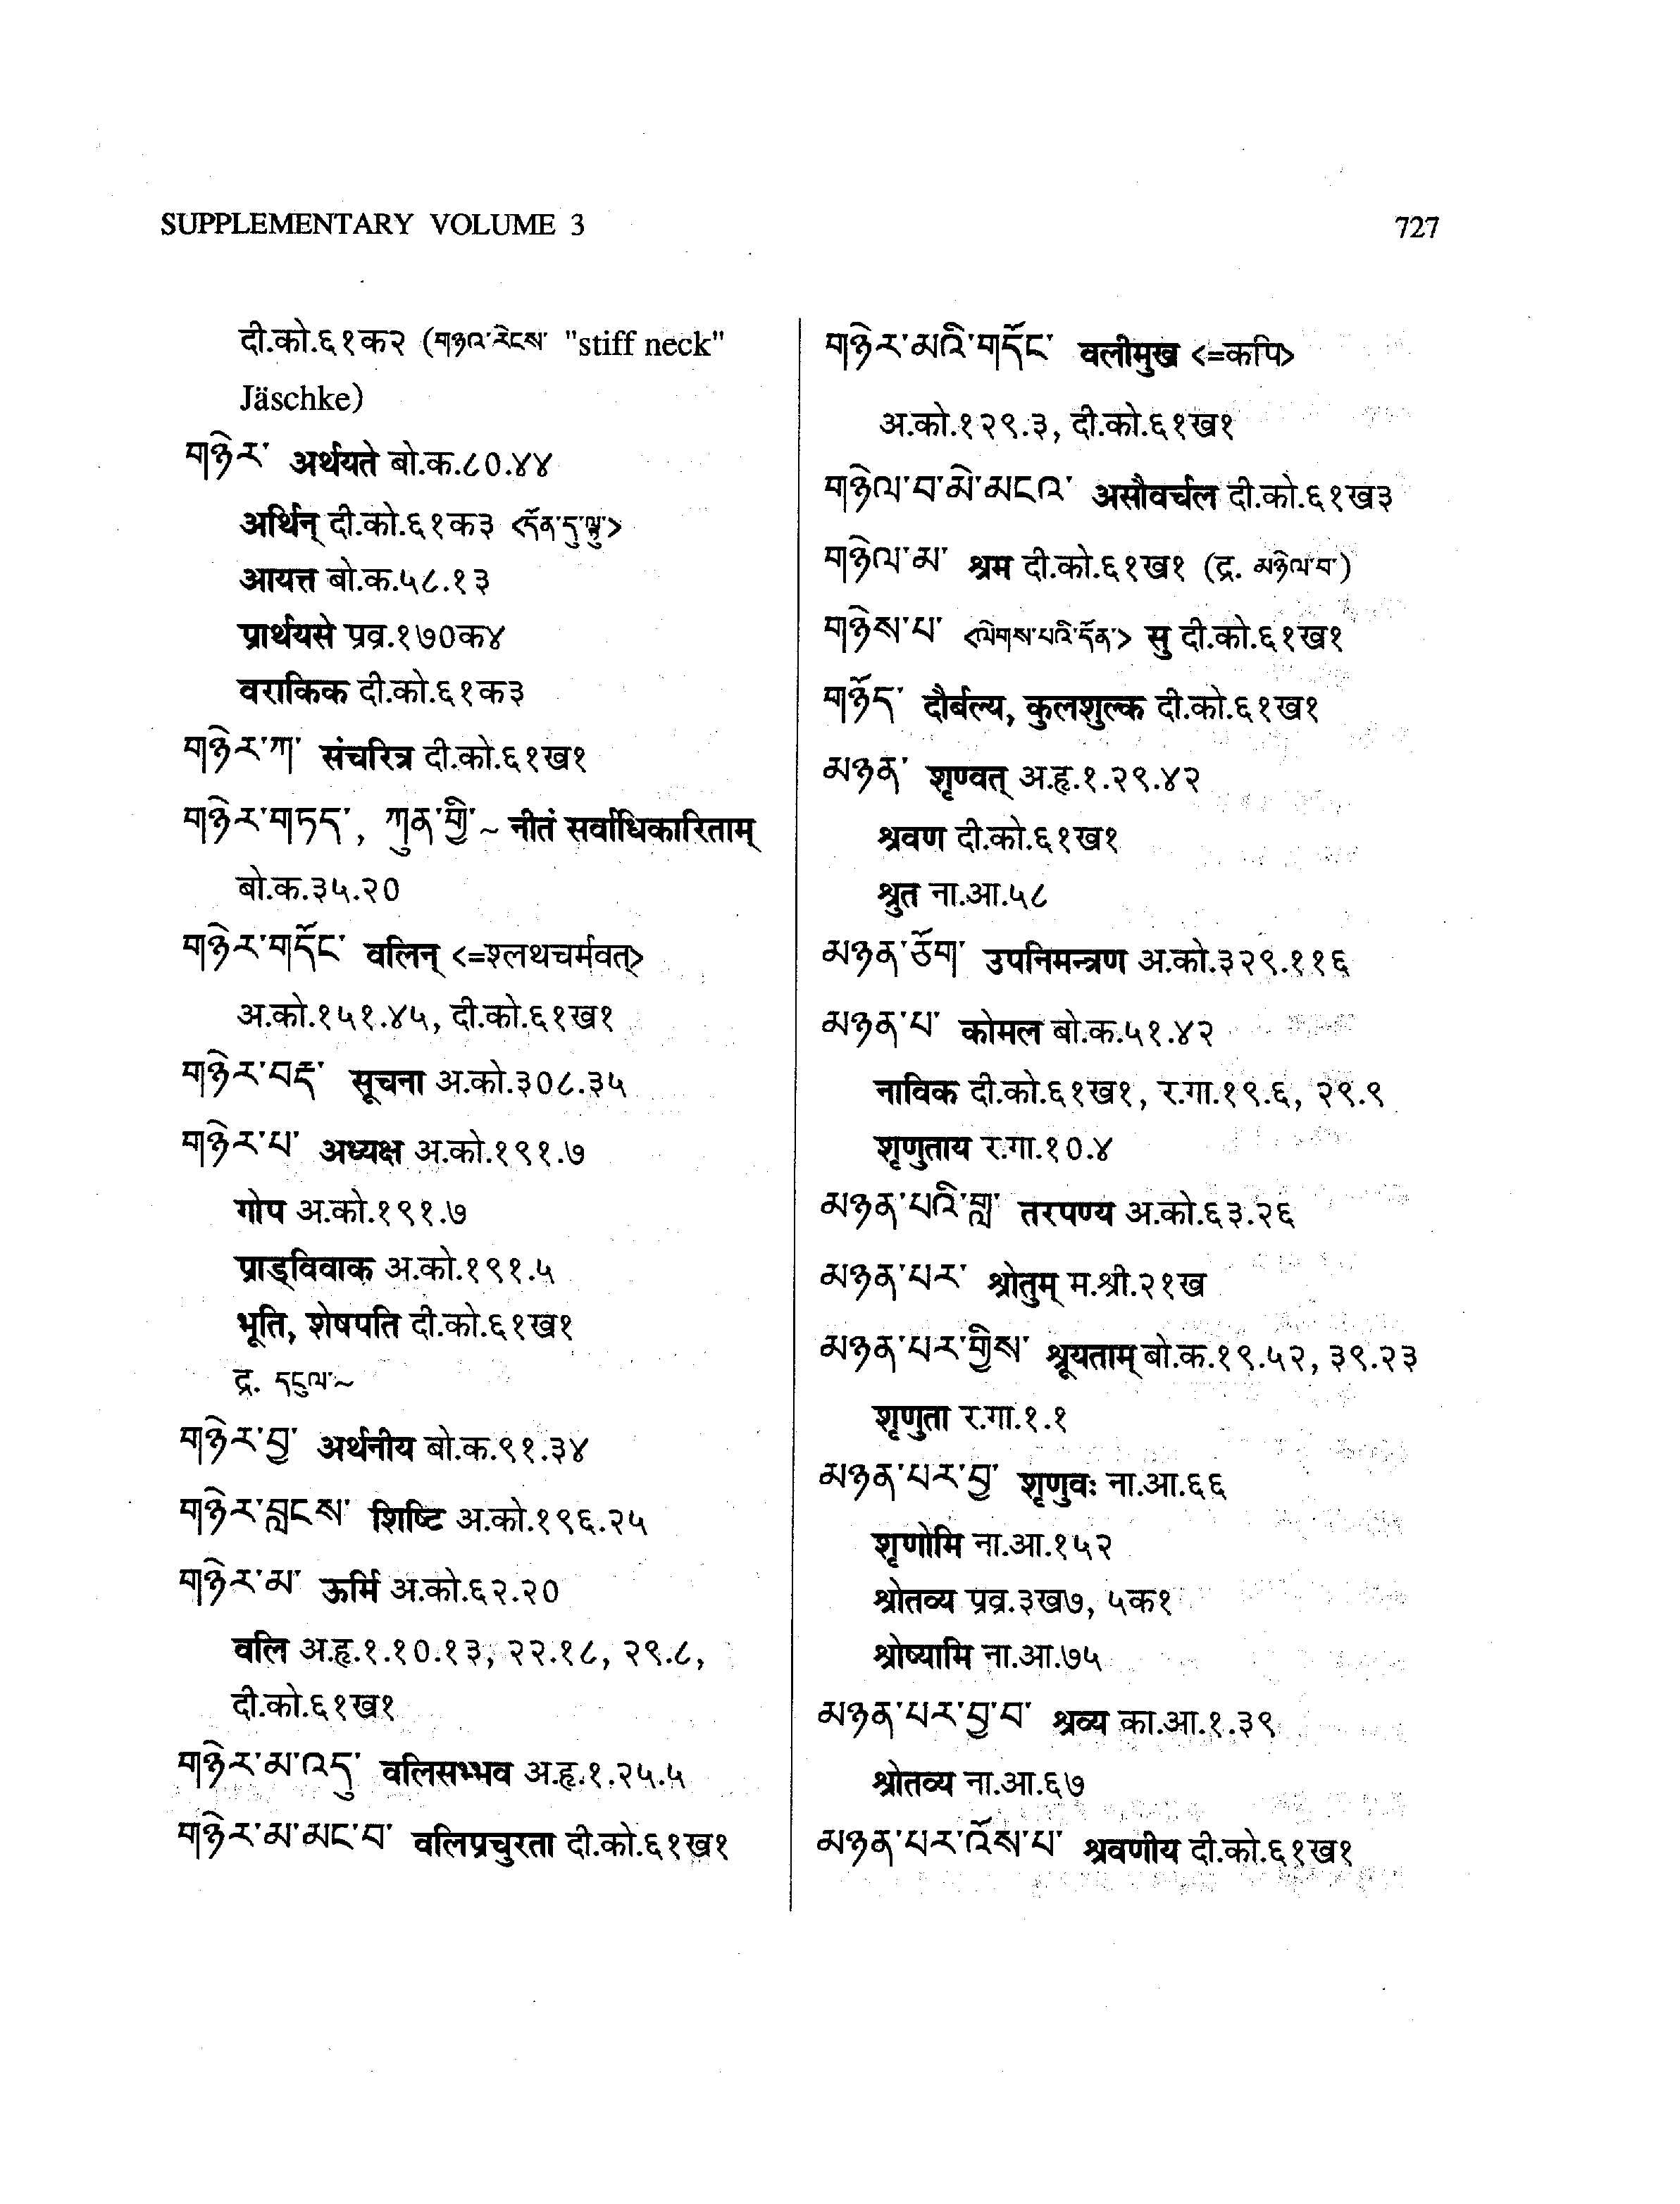 SUPPLEMENTARY VOLUME 3
727
दी.को.६१क२ (གཉའ་རེངས་ "stiff neck"
Jäschke)
གཉེར་ अर्थयते बो.क.८०.४४
अर्थिन् दी.को.६१क३ <དོན་དུ་ལྟ་>
आयत्त बो.क.५८.१३
प्रार्थयसे प्रव्र.१७०क४
वराकिक दी.को.६१क३
གཉེར་ཀ་ संचरित्र दी.को.६१ख१
གཉེར་གཏད་, ཀུན་གྱི་~ नीतं सर्वाधिकारिताम्
बो.क.३५.२०
གཉེར་གདོང་ वलिन् <=श्लथचर्मवत्>
अ.को.१५१.४५, दी.को.६१ख१
གཉེར་བརྡ་ सूचना अ.को.३०८.३५
གཉེར་པ་ अध्यक्ष अ.को.१९१.७
गोप अ.को.१९१.७
प्राड्विवाक अ.को.१९१.५
भूति, शेषपति दी.को.६१ख१
द्र. དངུལ་~
གཉེར་བྱ་ अर्थनीय बो.क.९१.३४
གཉེར་བླངས་ शिष्टि अ.को.१९६.२५
གཉེར་མ་ ऊर्मि अ.को.६२.२०
वलि अ.हृ.१.१०.१३, २२.१८, २९.८,
दी.को.६१ख१
གཉེར་མ་འདུ་ वलिसम्भव अ.हृ.१.२५.५
གཉེར་མ་མང་བ་ वलिप्रचुरता दी.को.६१ख१
གཉེར་མའི་གདོང་ वलीमुख <=कपि>
अ.को.१२९.३, दी.को.६१ख१
གཉེལ་བ་མེ་མངའ་ असौवर्चल दी.को.६१ख३
གཉེལ་མ་ श्रम दी.को.६१ख१ (द्र. མཉེལ་བ་)
གཉེས་པ་ <ལེགས་པའི་དོན་> सु दी.को.६१ख१
གཉོད་ दौर्बल्य, कुलशुल्क दी.को.६१ख१
མཉན་ शृण्वत् अ.हृ.१.२९.४२
श्रवण दी.को.६१ख१
श्रुत ना.आ.५८
མཉན་ཅོག་ उपनिमन्त्रण अ.को.३२९.११६
མཉན་པ་ कोमल बो.क.५१.४२
नाविक दी.को.६१ख१, र.गा.१९.६, २९.९
शृणुताय र.गा.१०.४
མཉན་པའི་གླ་ तरपण्य अ.को.६३.२६
མཉན་པར་ श्रोतुम् म.श्री.२१ख
མཉན་པར་གྱིས་ श्रूयताम् बो.क.१९.५२, ३९.२३
शृणुता र.गा.१.१
མཉན་པར་བྱ་ शृणुवः ना.आ.६६
शृणोमि ना.आ.१५२
श्रोतव्य प्रव्र.३ख७, ५क१
श्रोष्यामि ना.आ.७५
མཉན་པར་བྱ་བ་ श्रव्य का.आ.१.३९
श्रोतव्य ना.आ.६७
མཉན་པར་འོས་པ་ श्रवणीय दी.को.६१ख१